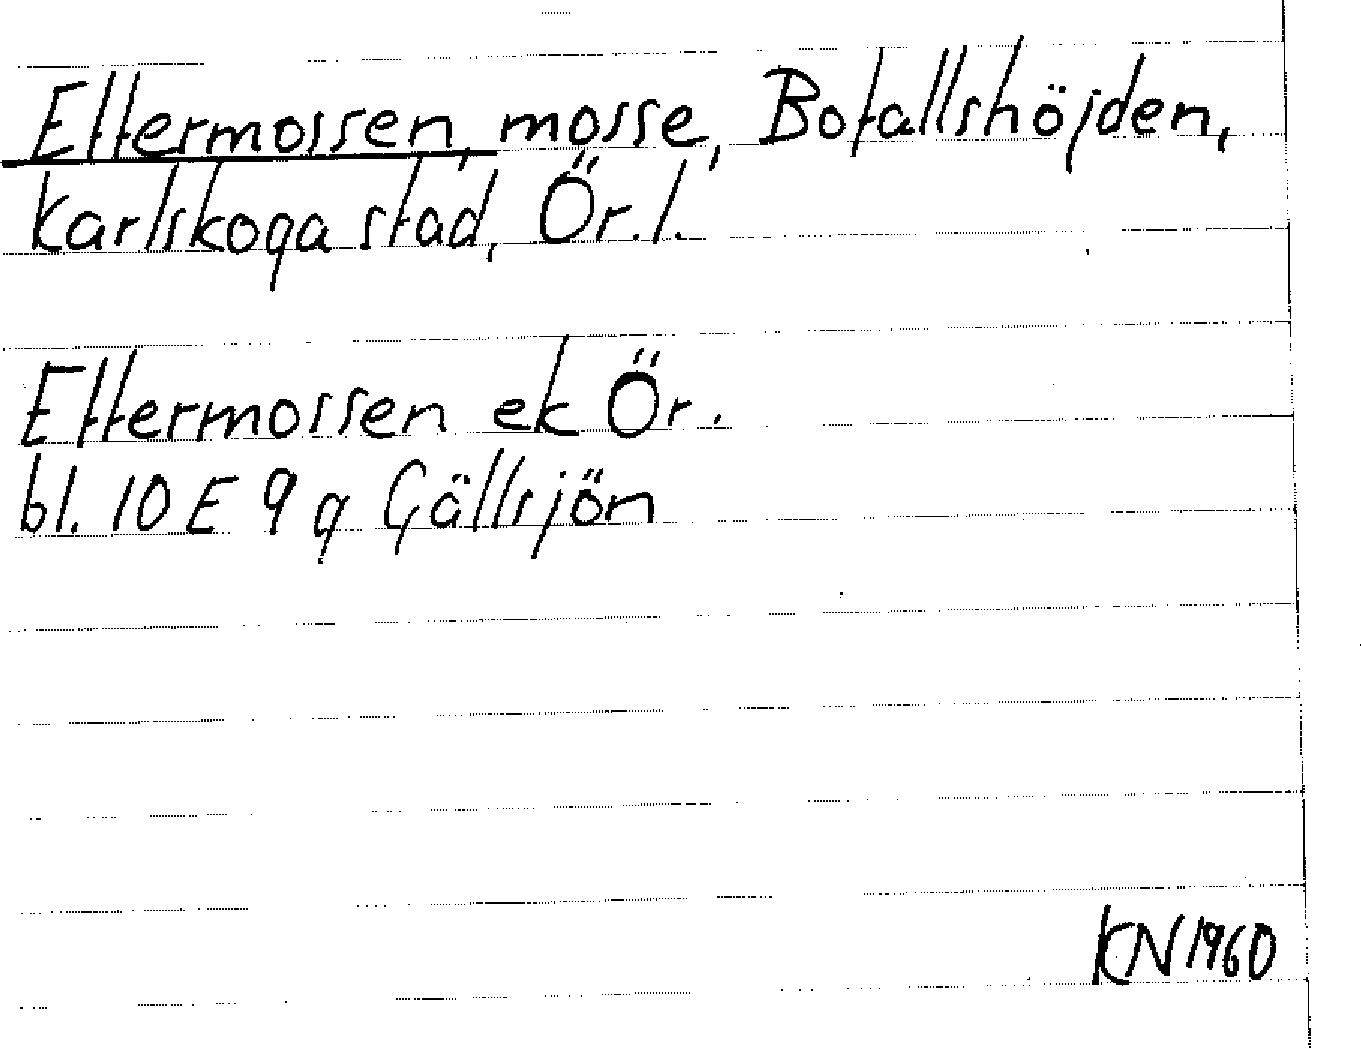 Ettermossen, mosse, Bofallshöjden,
Karlskoga stad, Ör. l.
Ettermossen ek Ör.
bl. 10 E 9 g Gällsjön
KN 1960